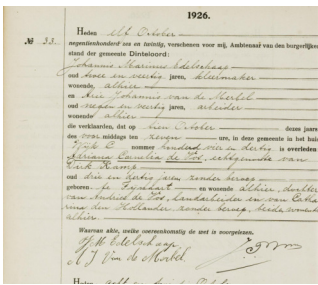 1926.
№ 33.
Heden elf October
negentienhonderd zes en twintig, verschenen voor mij, Ambtenaar van den burgerlijken
stand der gemeente Dinteloord:
Johannis Marinus Edelschaap
oud twee en veertig jaren, kleermaker
wonende, alhier
en Arie Johannis van de Merbel
oud negen en veertig jaren, arbeider
wonende alhier
die verklaarden, dat op tien October dezes jaars
des voor middags ten zeven ure, in deze gemeente in het huis
Wijk C nommer honderd vier en dertig is overleden
Adriana Cornelia de Vos, echtgenoote van
Dirk Kamp
oud drie en dertig jaren zonder beroep
geboren te Fijnaart en wonende alhier, dochter
van Andries de Vos, landarbeider en van Catha
rina den Hollander, zonder beroep, beide wonende
alhier.
Waarvan akte, welke overeenkomstig de wet is voorgelezen.
J. M. Edelschaap
A J van de Merbel.